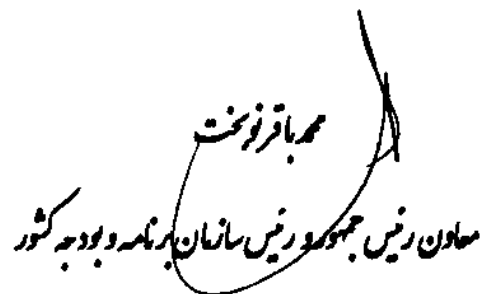 محمد باقر نوبخت
معاون رئیس جمهور و رئیس سازمان برنامه و بودجه کشور